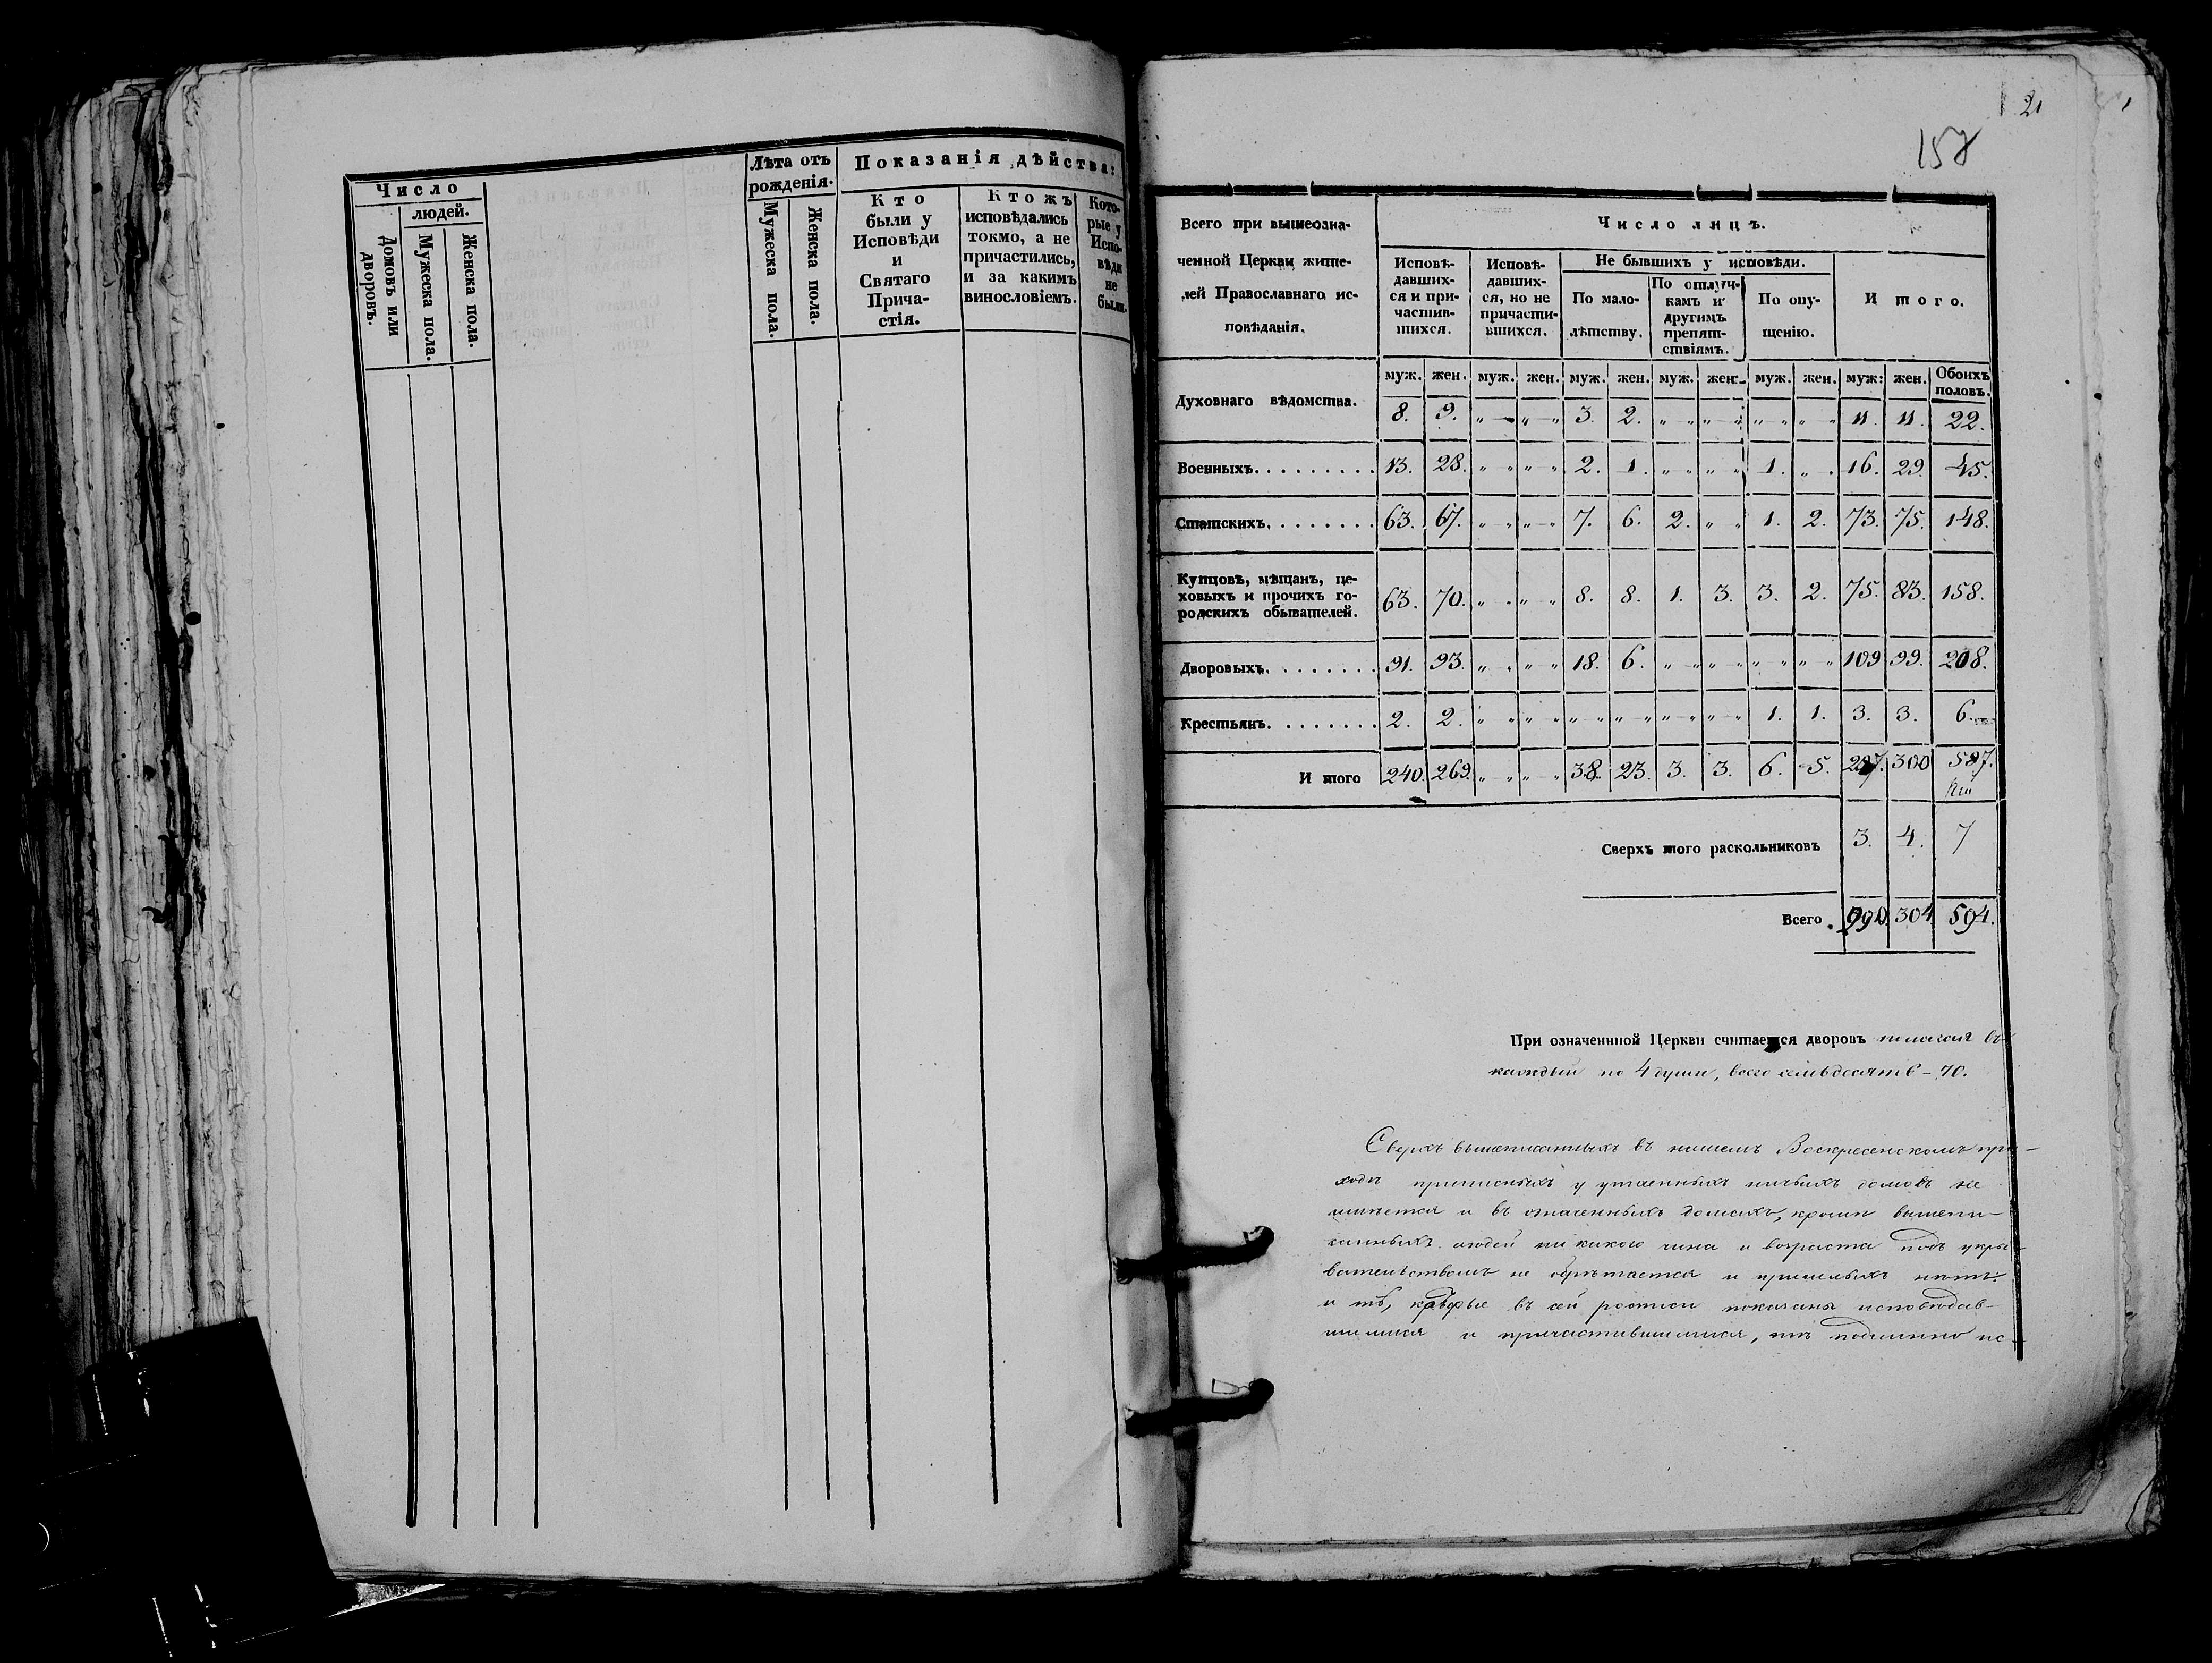 Число
людей.
Домовъ или дворовъ.
Мужеска пола.
Женска пола.
Лѣта отъ рожденія.
Мужеска пола.
Женска пола.
Показанія дѣйства:
Кто
были у
Исповѣди
и
Святаго
Прича-
стія.
Ктожъ
исповѣдались
токмо, а не
причастились,
и за какимъ
винословіемъ.
Кото-
рые у
Испо-
вѣди
не
были.
21
158
Всего при вышеозна-
ченной Церкви жите-
лей Православнаго ис-
повѣданія.
Число лицъ.
Исповѣ-
давших-
ся и при-
частив-
шихся.
Исповѣ-
давших-
ся, но не
причасти-
вшихся.
Не бывшихъ у исповѣди.
По мало-
лѣтству.
По отлуч-
камъ и
другимъ
препят-
ствіямъ.
По опу-
щенію.
И того.
муж. жен. муж. жен. муж. жен. муж. жен. муж. жен. муж: жен. Обоихъ половъ.
Духовнаго вѣдомства. 8. 9. " " " " 3. 2. " " " " " " " " 11. 11. 22.
Военныхъ. 13. 28. " " " " 2. 1. " " " " 1. " " 16. 29. 45.
Статскихъ. 63. 67. " " " " 7. 6. 2. " " 1. 2. 73. 75. 148.
Купцовъ, мѣщанъ, це-
ховыхъ и прочихъ го-
родскихъ обывателей. 63. 70. " " " " 8. 8. 1. 3. 3. 2. 75. 83. 158.
Дворовыхъ. 91. 93. " " " " 18. 6. " " " " " " " " 109 99. 208.
Крестьянъ. 2. 2. " " " " " " " " " " " " 1. 1. 3. 3. 6.
И того 240. 269. " " " " 38. 23. 3. 3. 6. 5. 287. 300 587.
Сверхъ того раскольниковъ 3. 4. 7
Всего 290. 304 594.
При означенной Церкви считается дворовъ полагая въ
каждый по 4 души, всего семьдесятъ – 70.
Сверхъ вышеписанныхъ въ нашемъ Воскресенскомъ при-
ходѣ приписныхъ у утаенныхъ ничьихъ домовъ не
имѣется и въ означенныхъ домахъ, кромѣ вышепи-
санныхъ людей никакого чина и возраста подъ укры-
вательствомъ не обрѣтается и пришлыхъ нѣтъ:
и тѣ, которые въ сей росписи показаны исповѣдав-
шимися и причастившимися, тѣ подлинно ис-